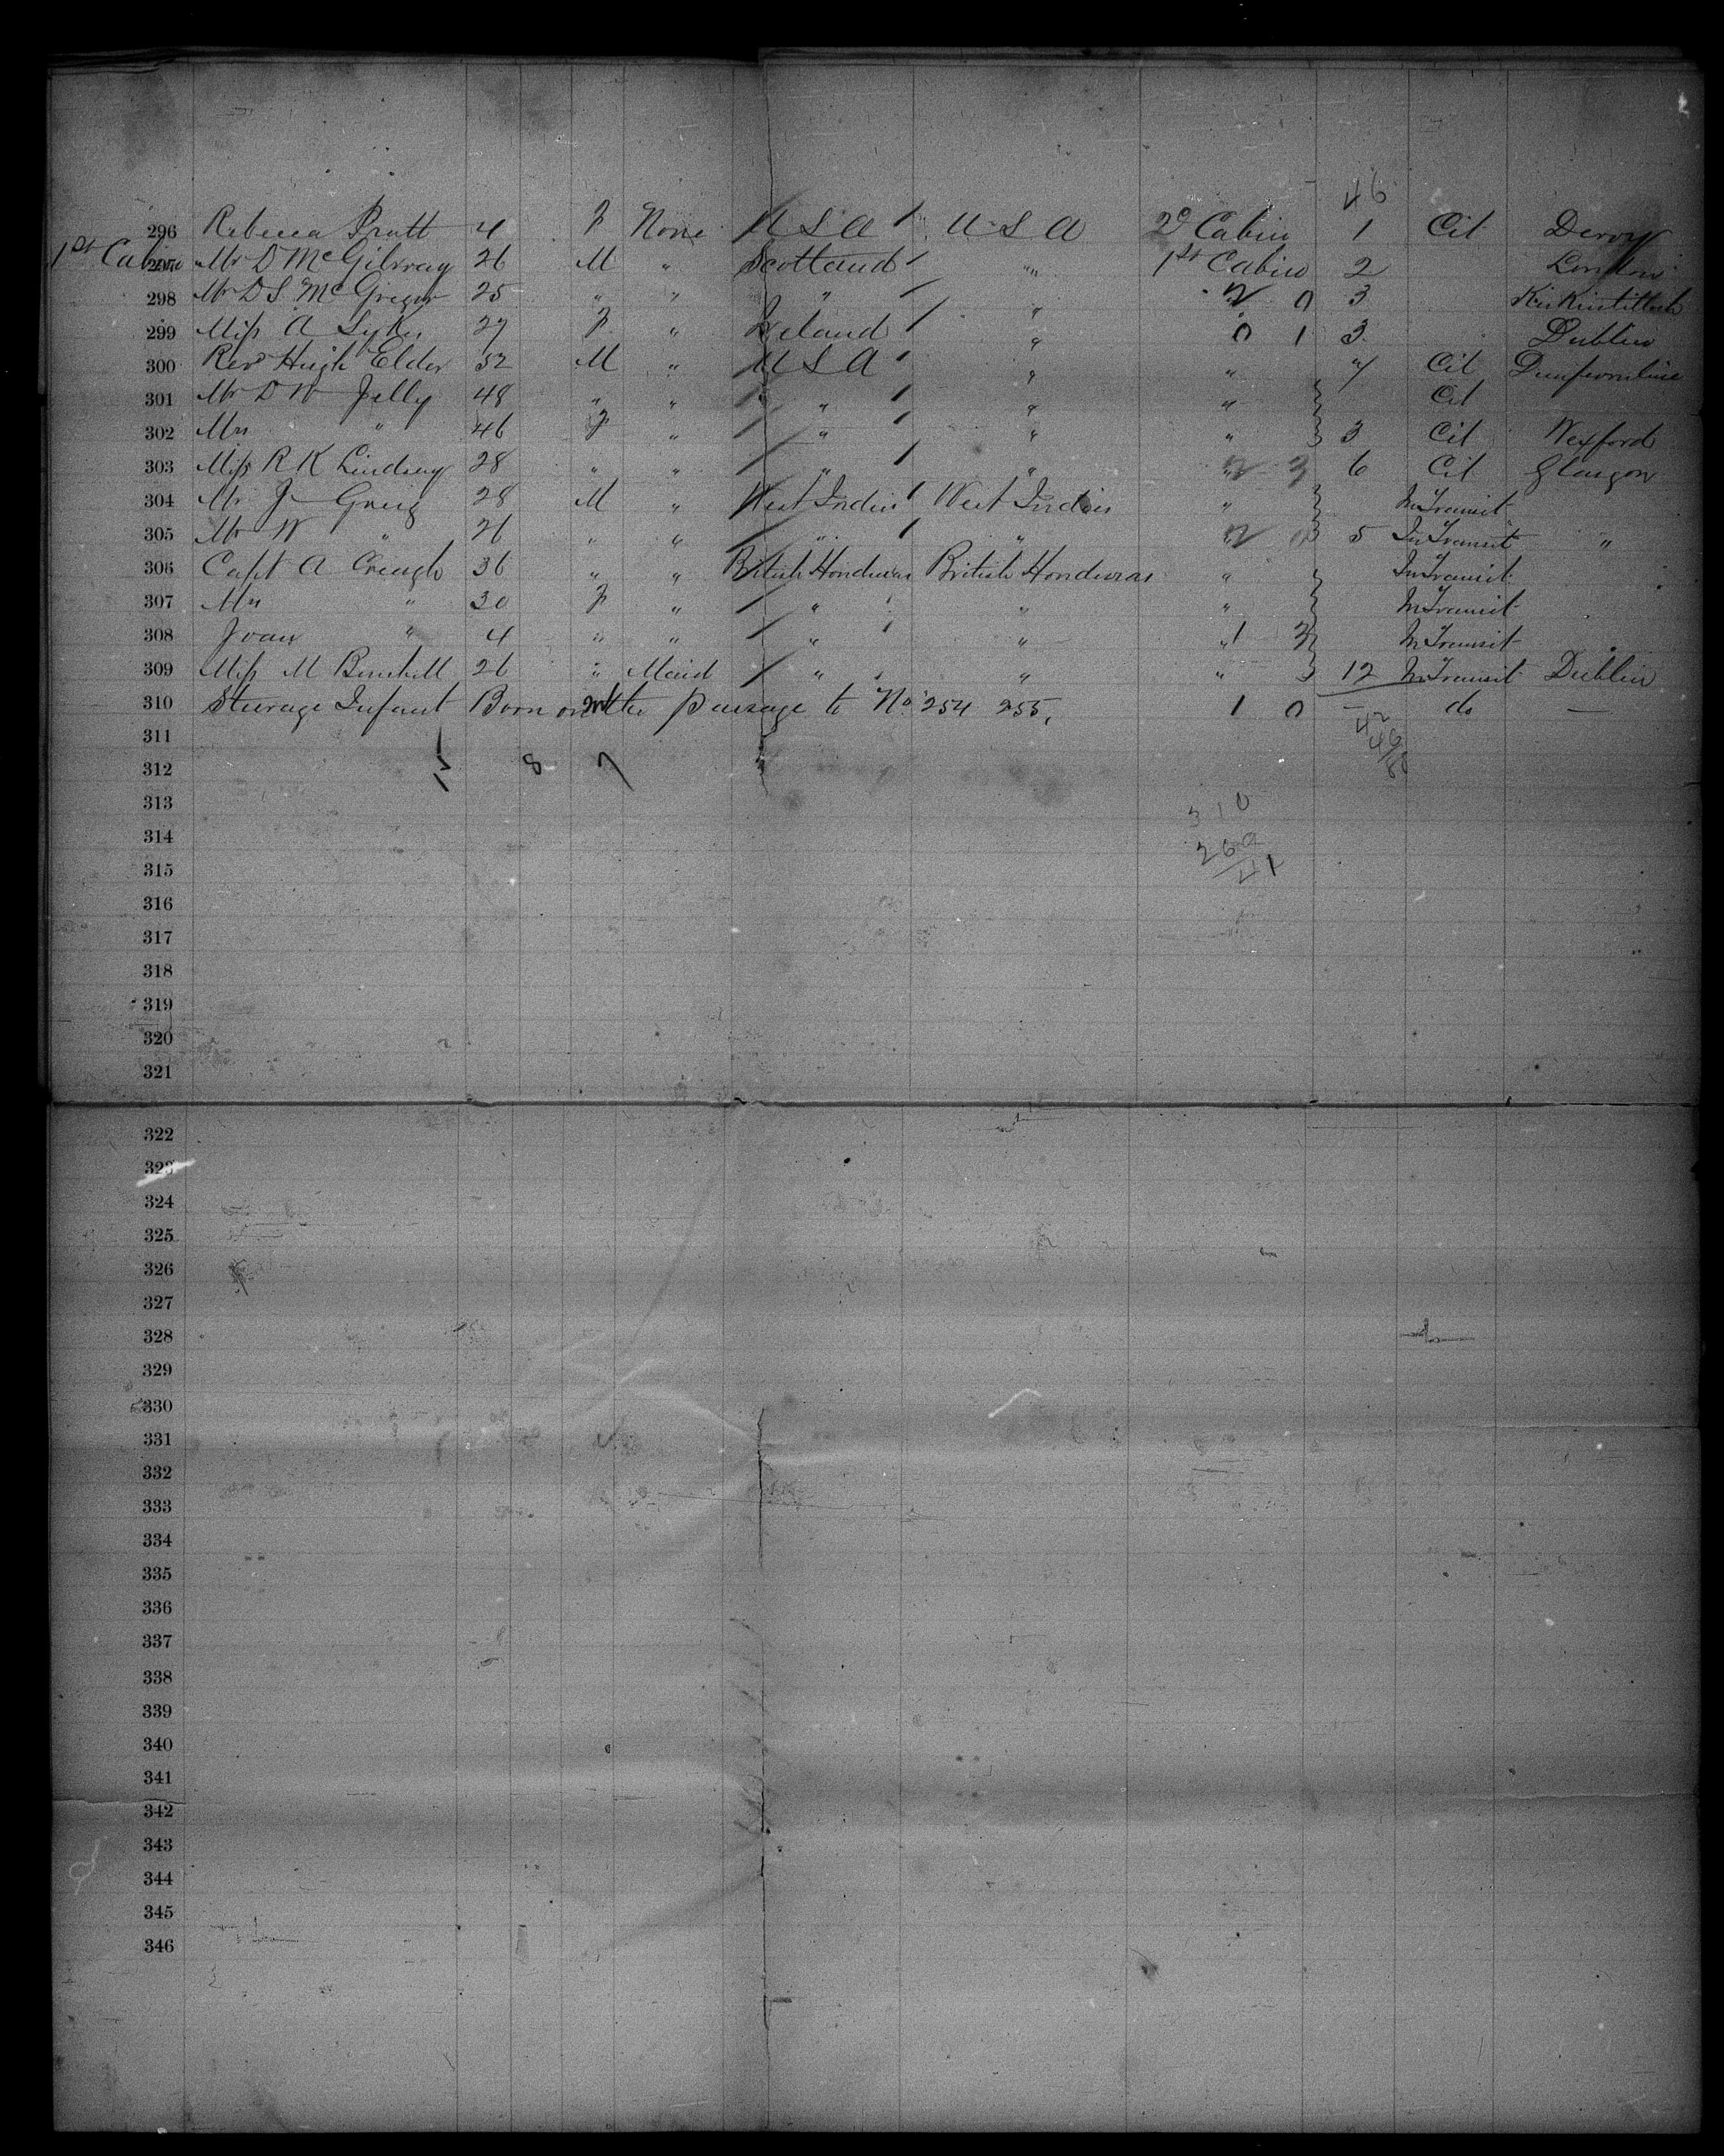 46
296 Rebecca Pratt 4 F None U S A U S A 2d Cabin 1 Cit Derry
1st Cabin 297 Mr D McGilvray 26 M " Scotland " 1st Cabin 2 London
298 Mr D S McGregor 25 " " " " " 0 3 Kirkintilloch
299 Miss A Sykes 27 F " Ireland " 0 1 3 Dublin
300 Revd Hugh Elder 52 M " U S A " " " Cit Dunfermline
301 Mr D W Jelly 48 " " " " " Cit
302 Mrs " 46 F " " " " 3 Cit Wexford
303 Miss R K Lindsay 28 " " " " " 6 Cit Glasgow
304 Mr J Greig 28 M " West Indies West Indies " In Transit
305 Mr W " 26 " " " " " 5 In Transit "
306 Capt A Creagh 36 " " British Honduras British Honduras " In Transit
307 Mrs " 30 F " " " " In Transit
308 Joan " 4 " " " " " 1 In Transit
309 Miss M 26 " Maid " " " 12 In Transit Dublin
310 Steerage Infant Born on the passage to No 254 255. 1 0 — do —
311
312 15 8 7
313 310
314
315 269
41
316
317
318
319
320
321
322
323
324
325
326
327
328
329
330
331
332
333
334
335
336
337
338
339
340
341
342
343
344
345
346